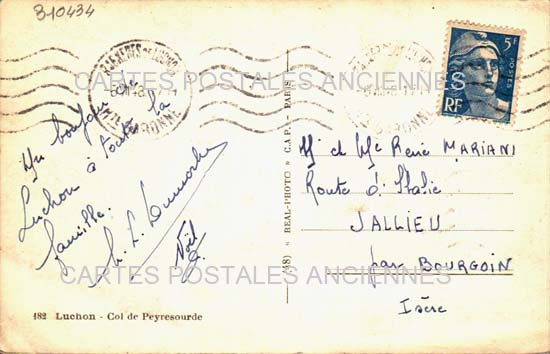 310434
5F
POSTES
RF
CARTES POSTALES ANCIENNES
Un bonjour de
Luchon à toute la
famille.
Noël
"REAL-PHOTO" C.A.P. - PARIS
Mr et Mme René MARIANI
Route d'Italie
JALLIEU
par BOURGOIN
Isère
CARTES POSTALES ANCIENNES
182 Luchon - Col de Peyresourde